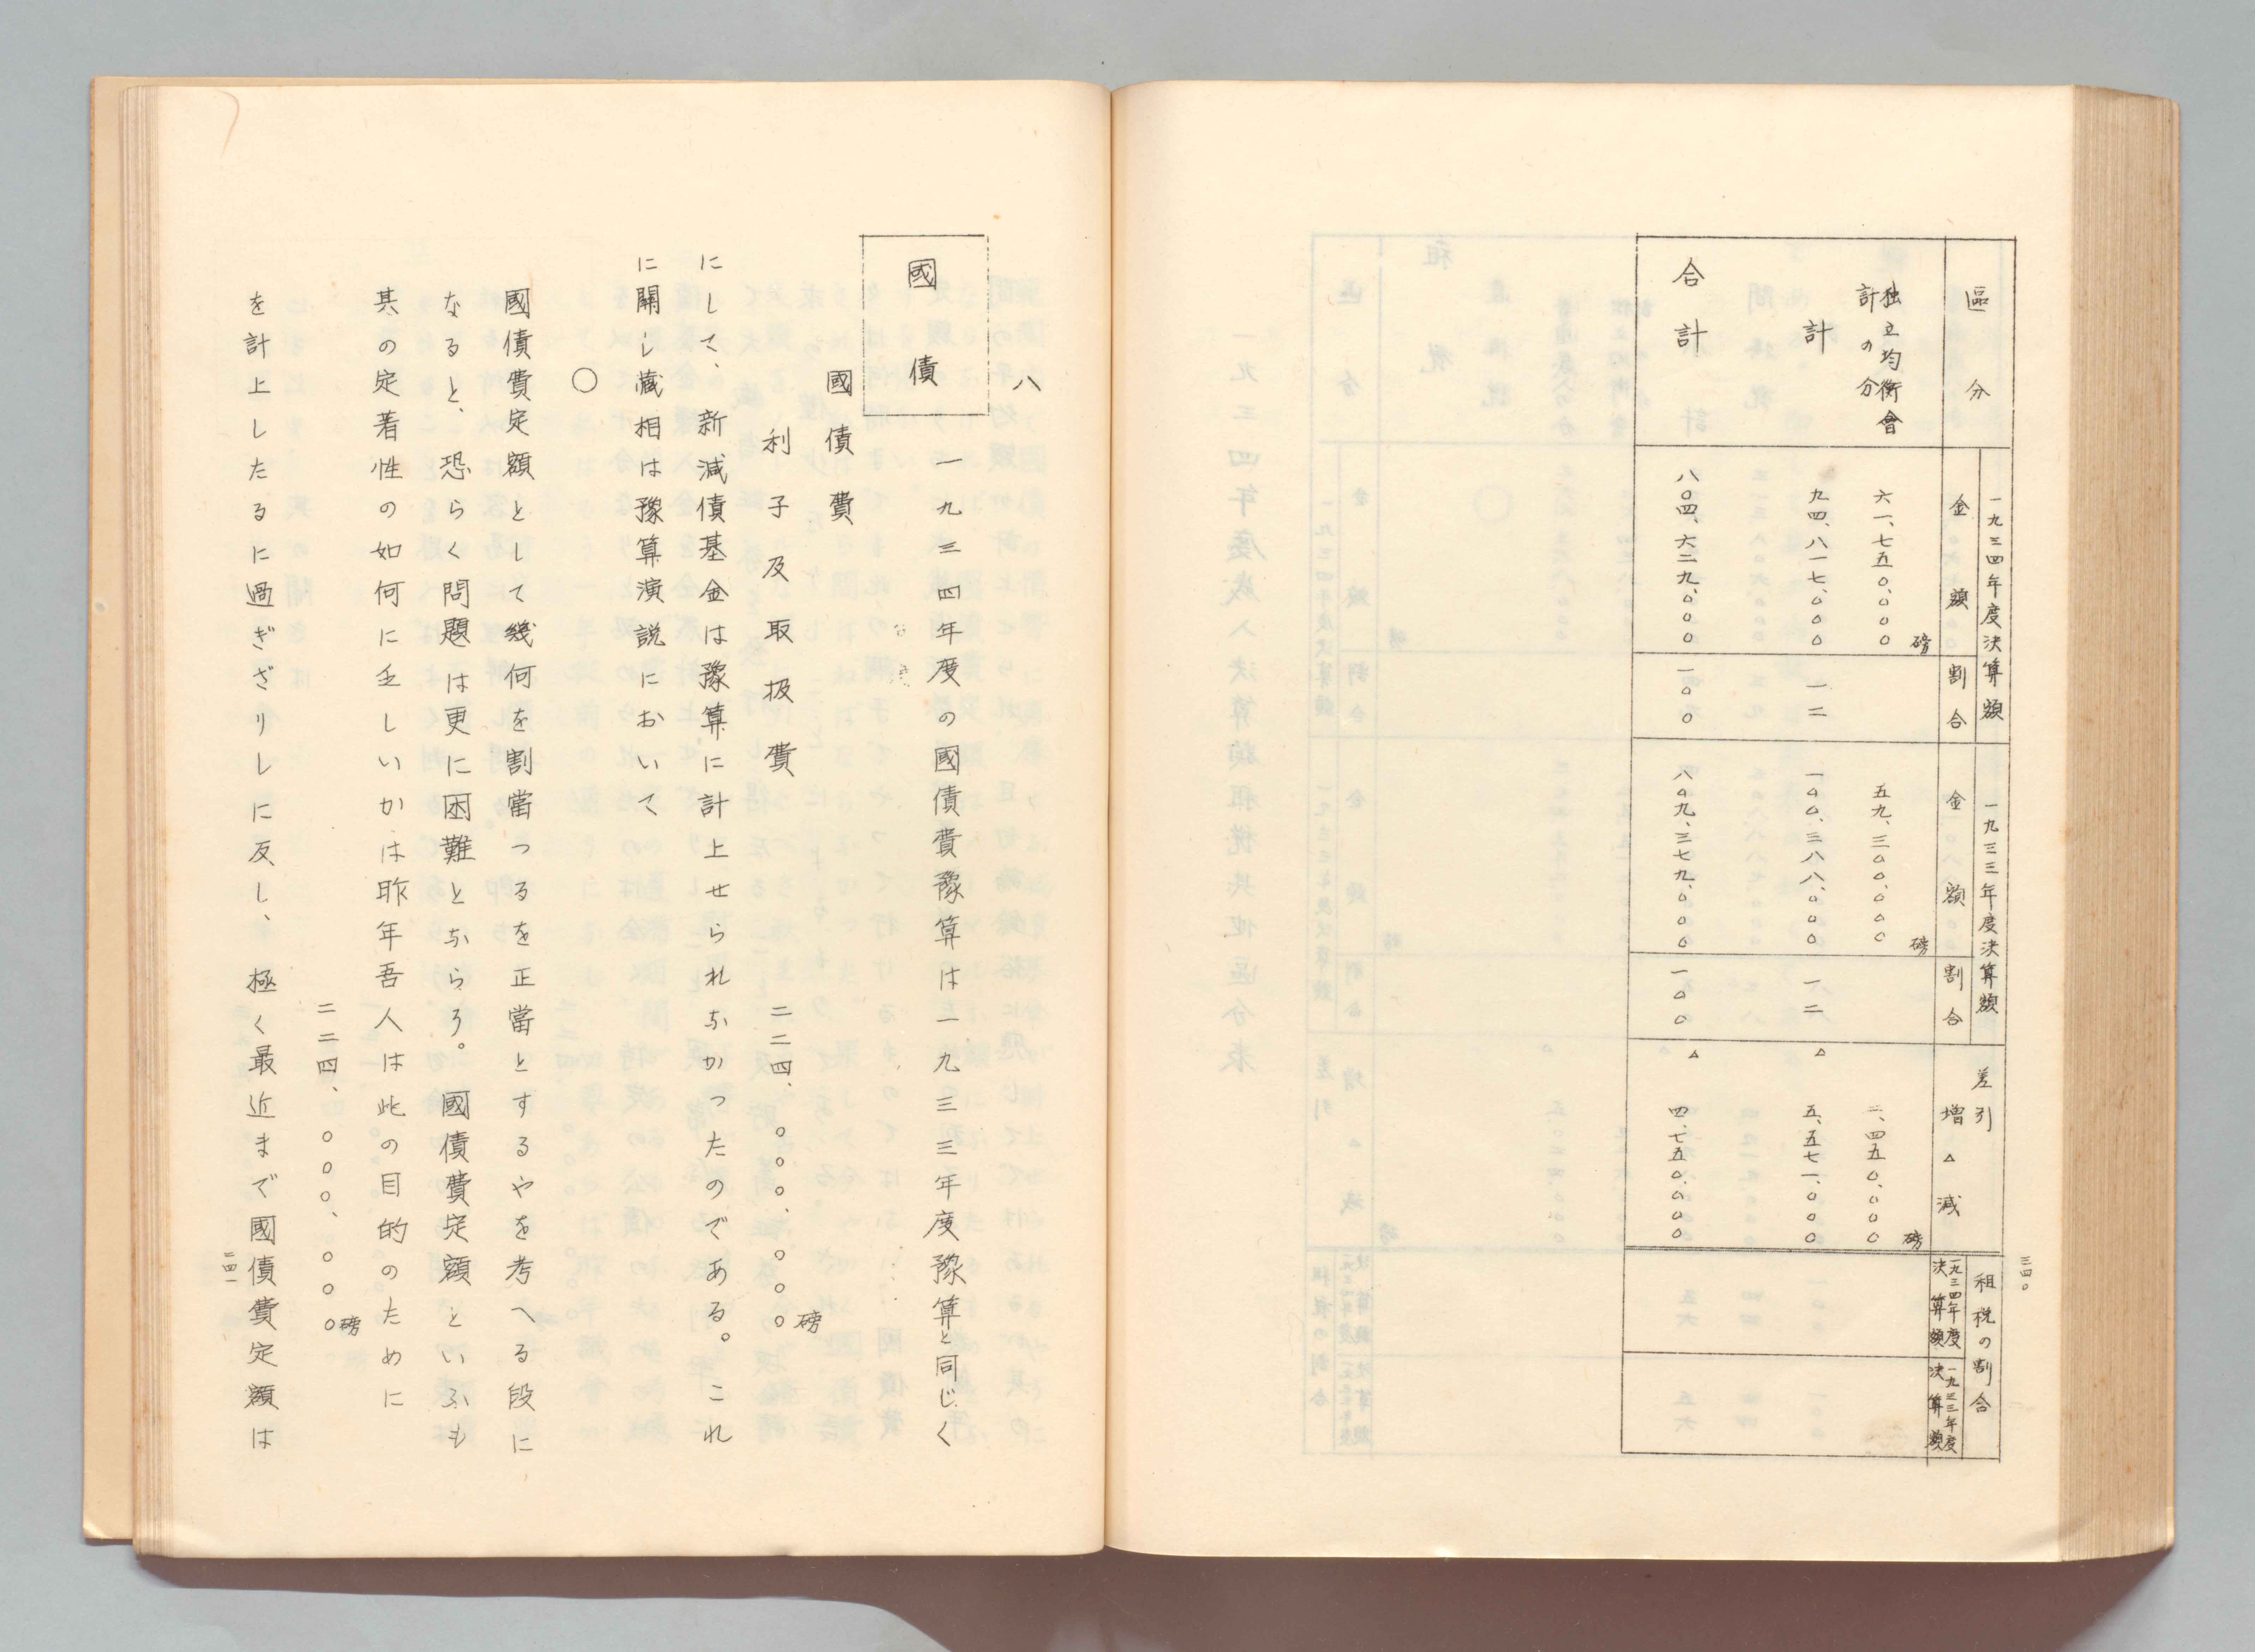 二四〇
區分
一九三四年度決算額
金額
割合
一九三三年度決算額
金額
割合
差引
増△減
租税の割合
一九三四年度
決算額
一九三三年度
決算額
磅
磅
磅
独立均衡會
計の分
六一、七五〇、〇〇〇
五九、三〇〇、〇〇〇
二、四五〇、〇〇〇
計
九四、八一七、〇〇〇
一二
一〇〇、三八八、〇〇〇
一二
△ 五、五七一、〇〇〇
合計
八〇四、六二九、〇〇〇
一〇〇
八〇九、三七九、〇〇〇
一〇〇
△ 四、七五〇、〇〇〇
八
國債
一九三四年度の國債費豫算は一九三三年度豫算と同じく
國債費
磅
利子及取扱費 二二四、〇〇〇、〇〇〇
にして、新減債基金は豫算に計上せられなかつたのである。これ
に關し藏相は豫算演説において
〇
國債費定額として幾何を割當つるを正當とするやを考へる段に
なると、恐らく問題は更に困難とならう。國債費定額といふも
其の定着性の如何に乏しいかは昨年吾人は此の目的のために
磅
二二四、〇〇〇、〇〇〇
を計上したるに過ぎざりしに反し、極く最近まで國債費定額は
二四一